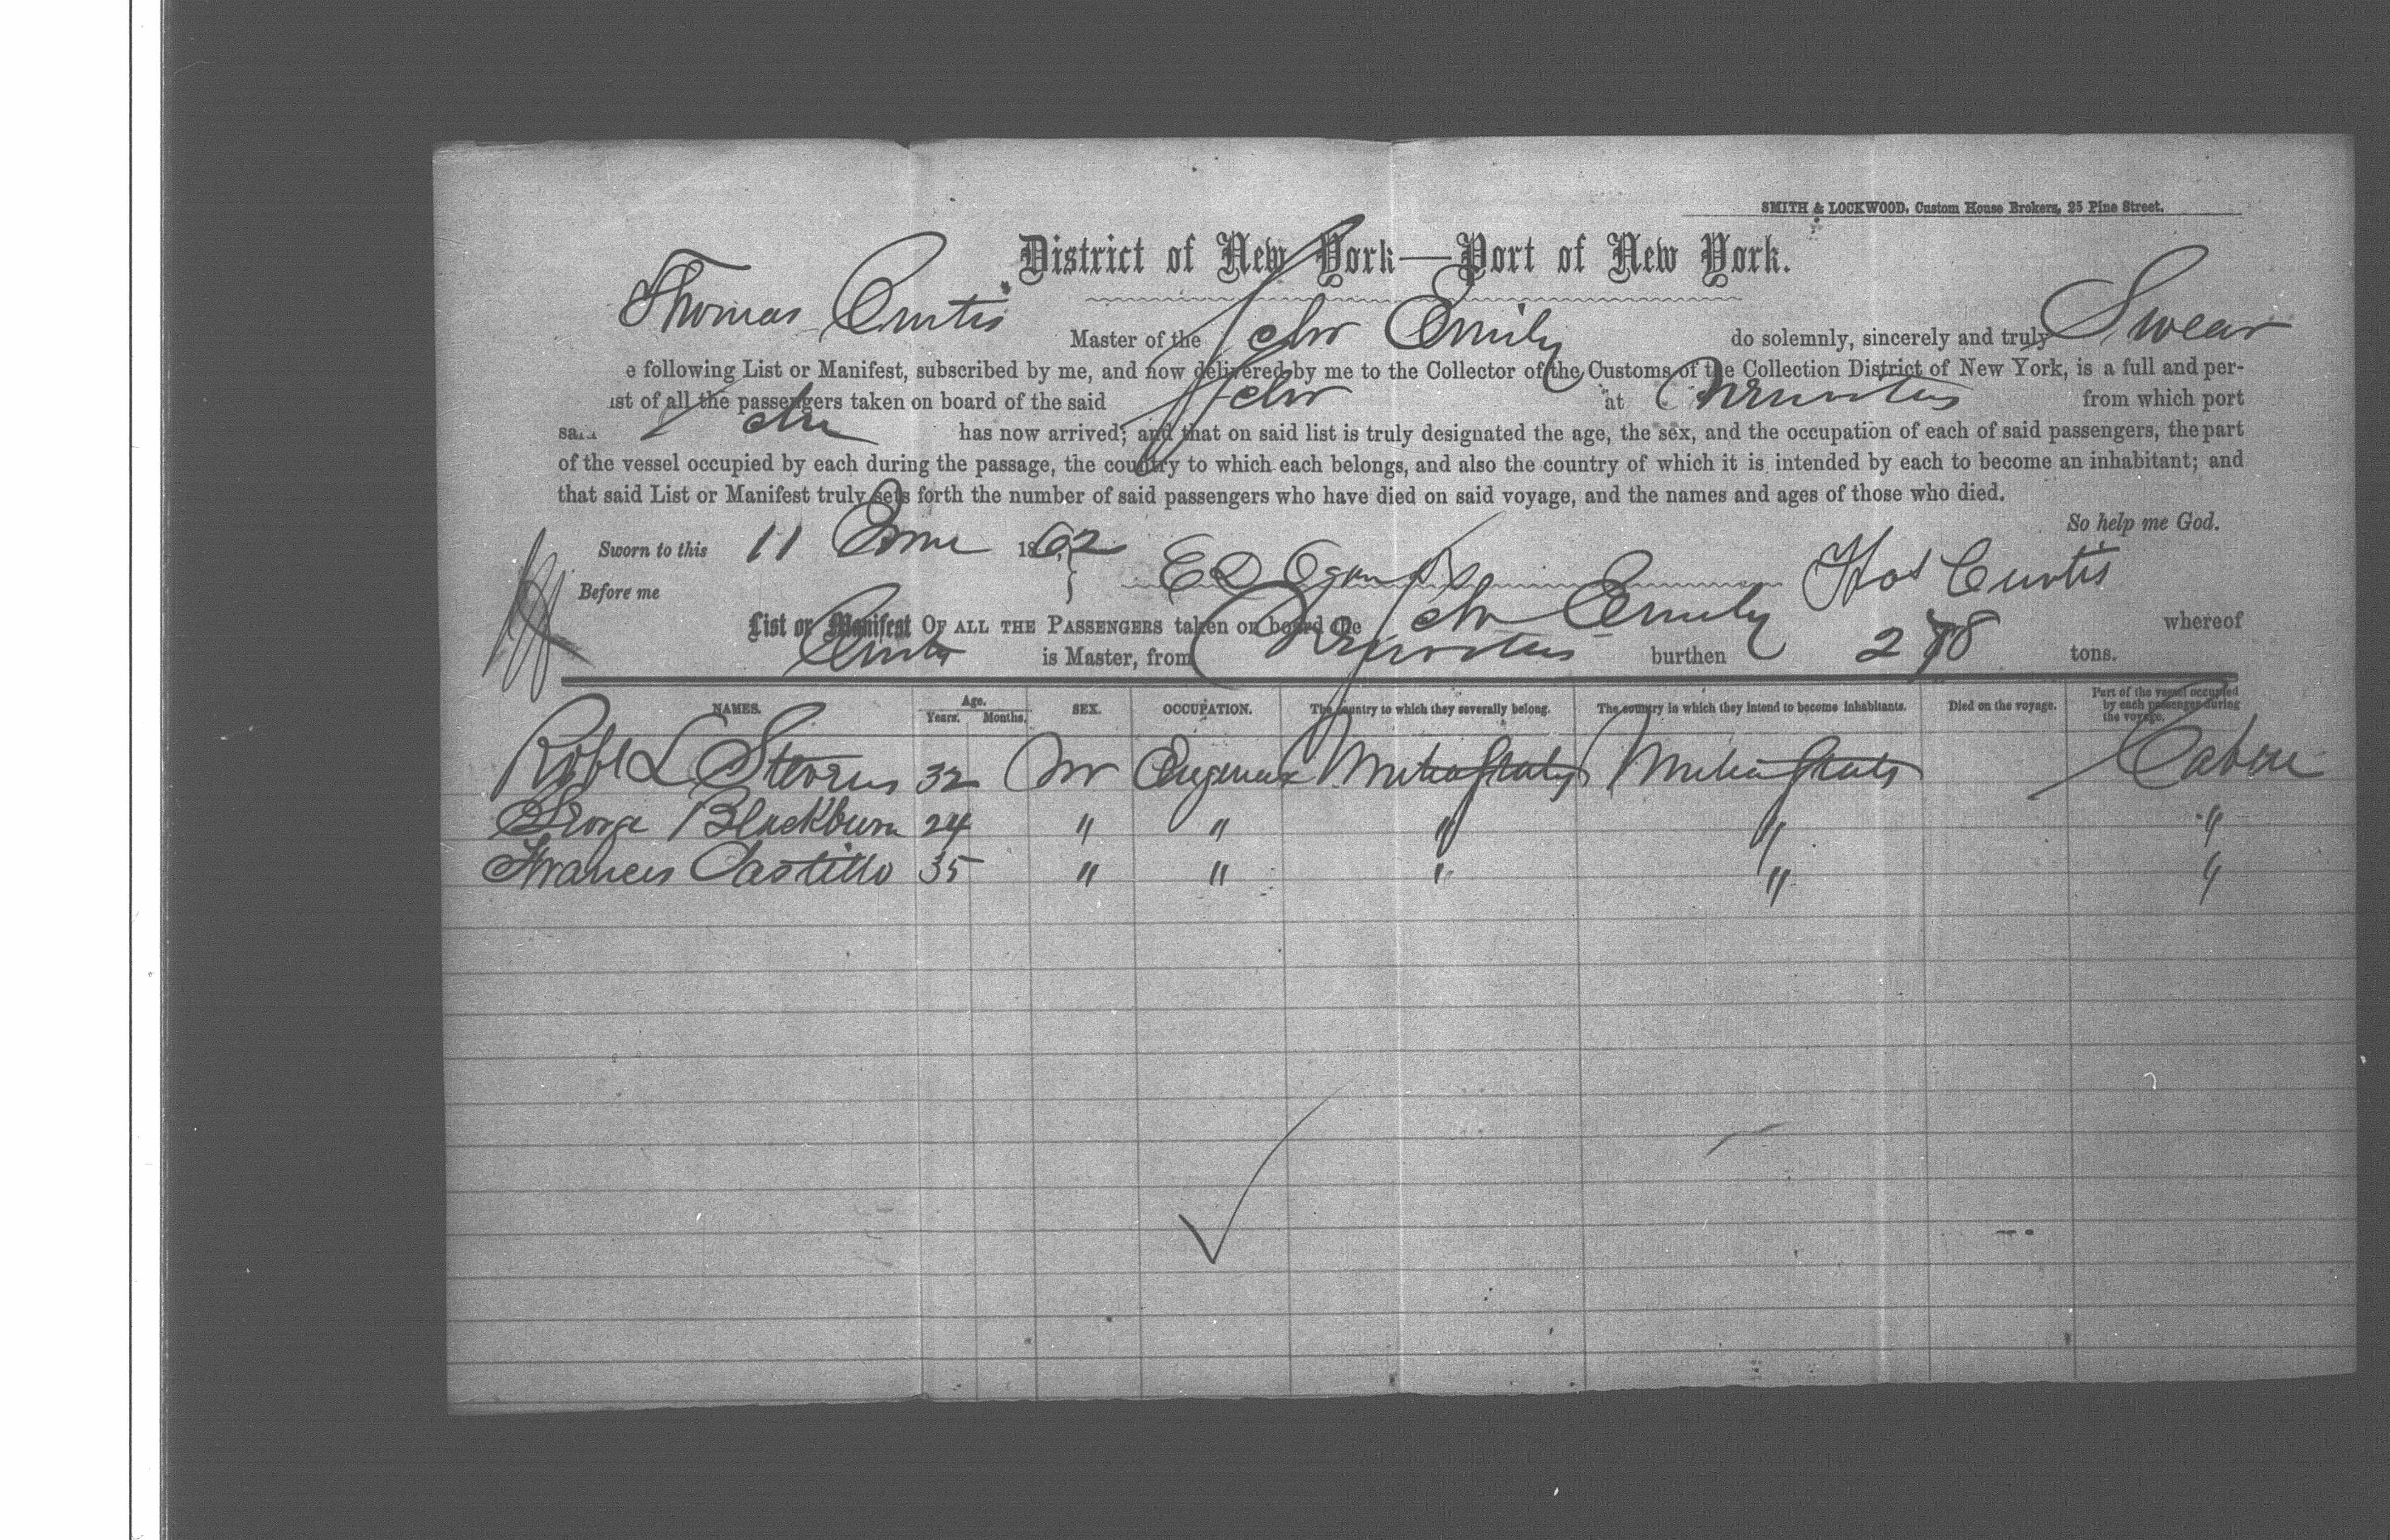 SMITH & LOCKWOOD, Custom House Brokers, 25 Pine Street.
District of New York—Port of New York.
Thomas Curtis Master of the Schr Emily do solemnly, sincerely and truly Swear
e following List or Manifest, subscribed by me, and now delivered by me to the Collector of the Customs of the Collection District of New York, is a full and per-
ist of all the passengers taken on board of the said Schr at from which port
said Schr has now arrived; and that on said list is truly designated the age, the sex, and the occupation of each of said passengers, the part
of the vessel occupied by each during the passage, the country to which each belongs, and also the country of which it is intended by each to become an inhabitant; and
that said List or Manifest truly sets forth the number of said passengers who have died on said voyage, and the names and ages of those who died.
So help me God.
Sworn to this 11 June 1862
Before me Thos Curtis
List or Manifest OF ALL THE PASSENGERS taken on board the Schr Emily whereof
Curtis is Master, from burthen 278 tons.
NAMES. Age. Years. Months. SEX. OCCUPATION. The country to which they severally belong. The country in which they intend to become inhabitants. Died on the voyage. Part of the vessel occupied by each passenger during the voyage.
Robt L Stevens 32 M Engineer United States United States Cabin
George Blackburn 24 " " " " "
Francis Castillo 35 " " " " "